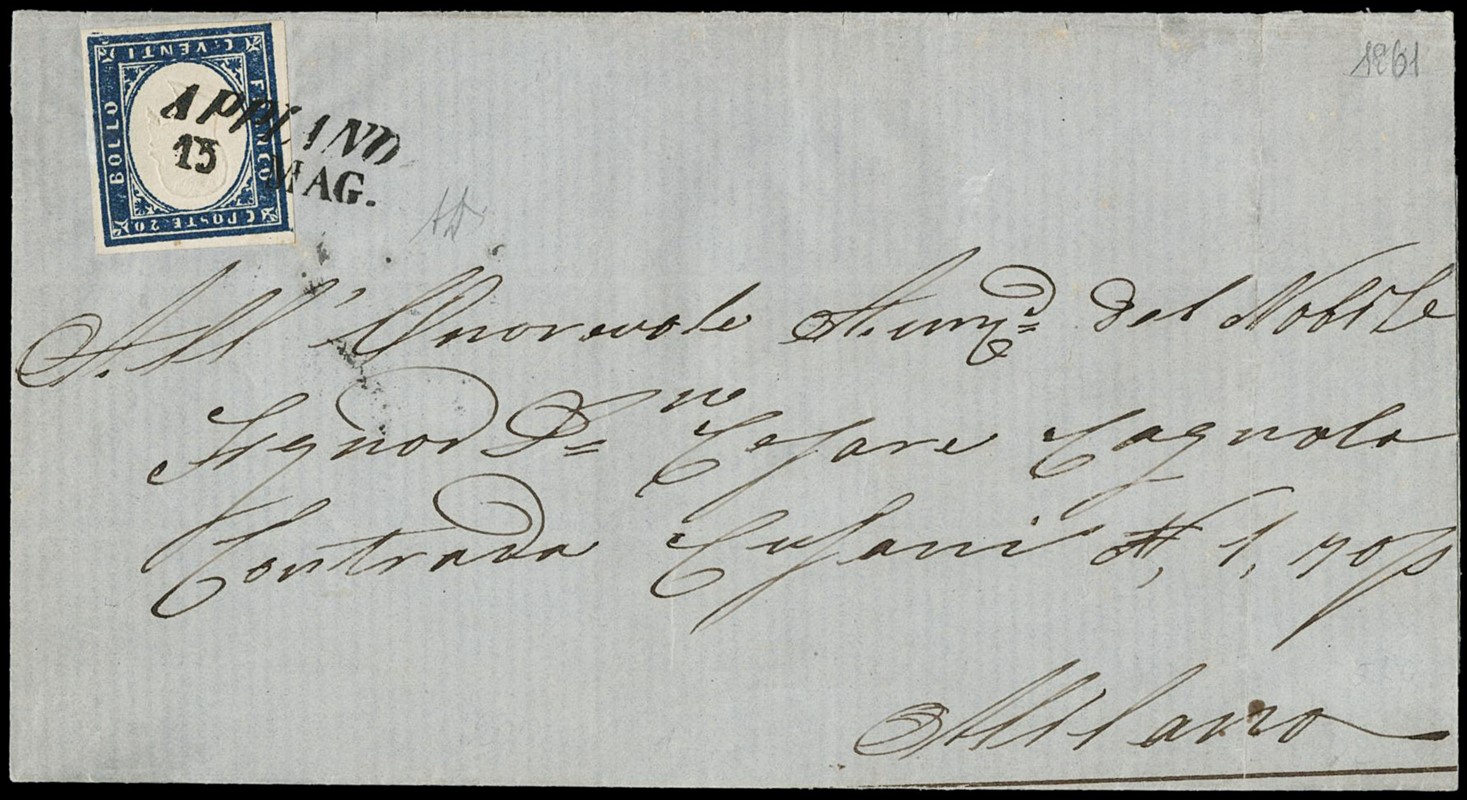 C. VENTI
FRANCO
BOLLO
C. POSTE 20
APPIANO
15
MAG.
1861
AD
All' Onorevole Amm.ne del Nobile
Signor D.n Cesare Cagnola
Contrada Cusani N. 1, rosso
Milano